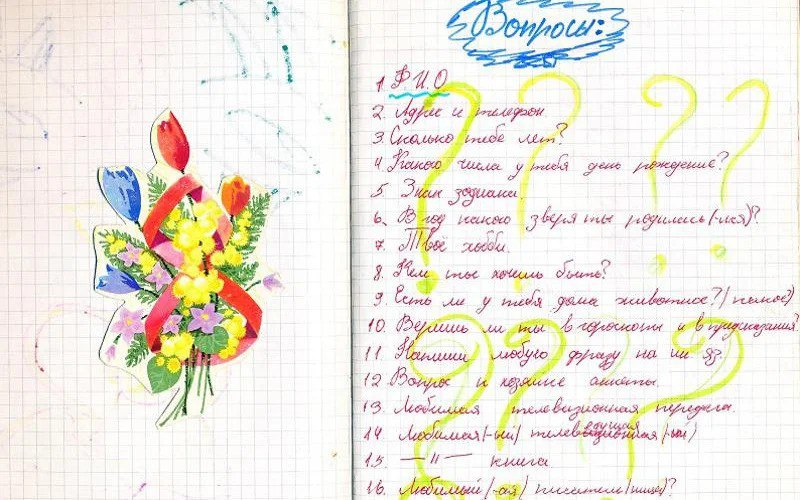 Вопросы:
1 Ф.И.О
2. Адрес и телефон
3. Сколько тебе лет?
4 Какого числа у тебя день рождение?
5. Знак зодиака.
6. В год какого зверя ты родились(-лся)?
7. Твоё хобби.
8. Кем ты хочешь быть?
9. Есть ли у тебя дома животное?
10. Веришь ли ты в гороскопы и в предсказания?
11. Напиши любую фразу на ин яз.
12. Вопрос к хозяйке анкеты.
13. Любимая телевизионная передача.
14 Любимая(-ый) ведущая (-ый)
15. —"— книга
16. Любимый(-ая) писатель